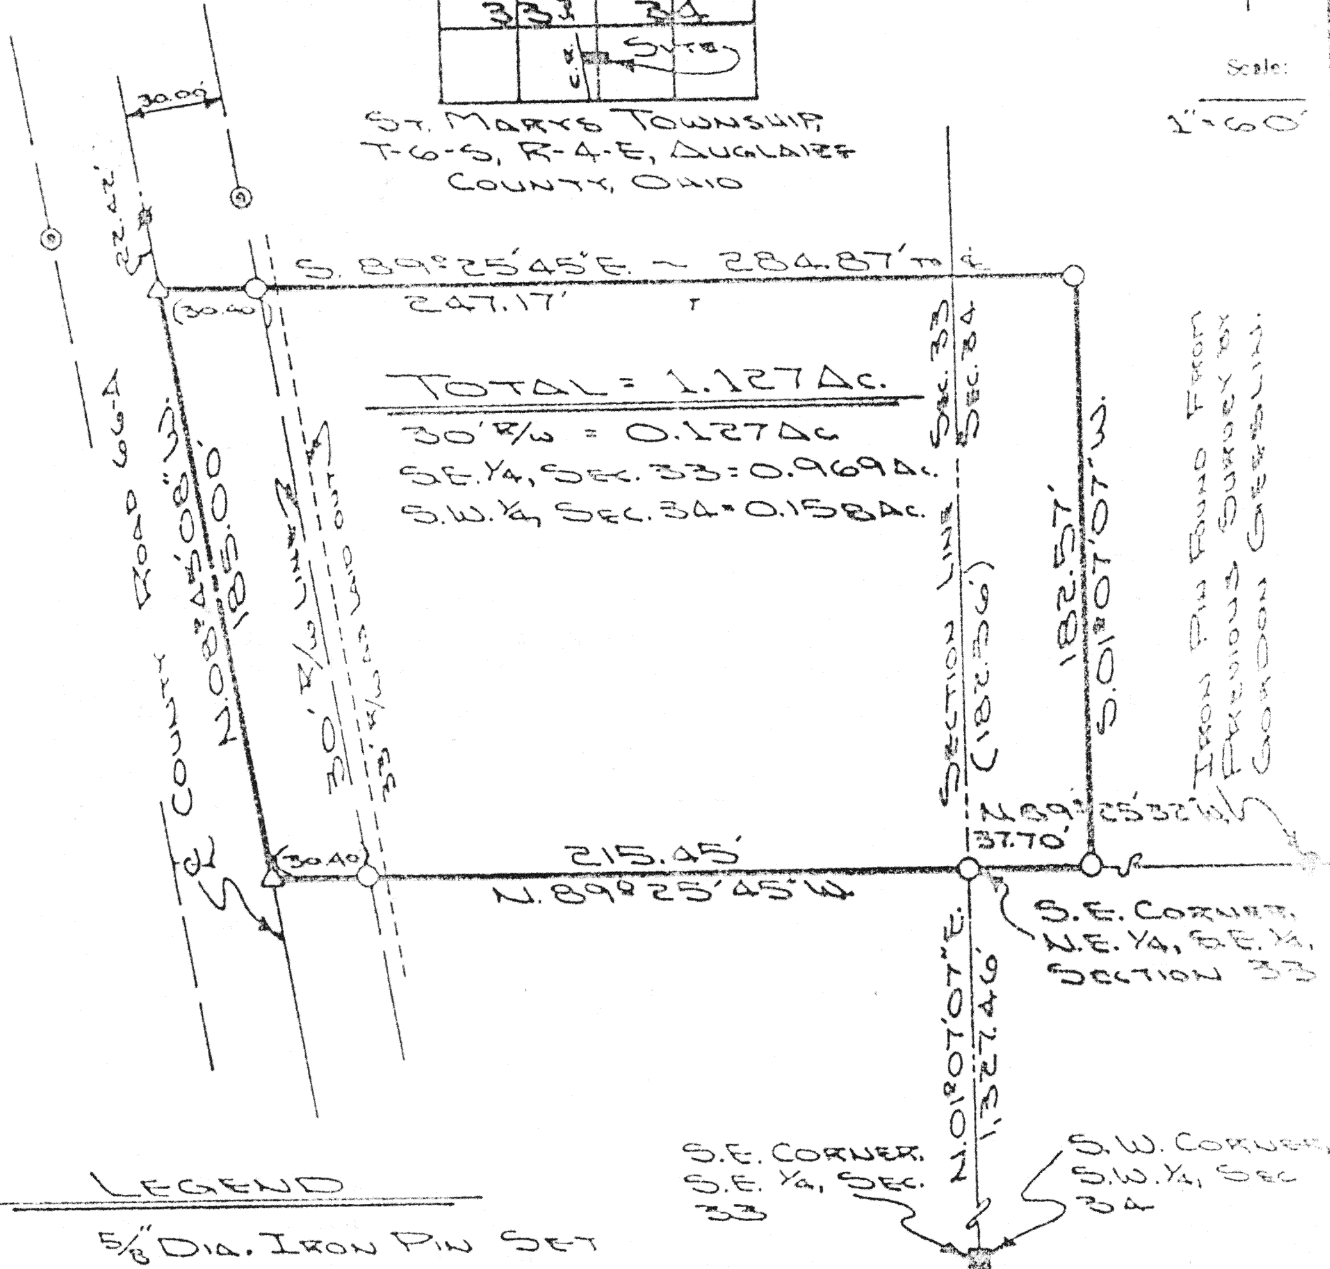 33 34
C.R. SITE
Scale:
1"=60'
ST. MARYS TOWNSHIP,
T-6-S, R-4-E, AUGLAIZE
COUNTY, OHIO
30.00'
22.42'
S. 89°25'45"E. ~ 284.87' TO ℄
(30.40) 247.17'
TOTAL = 1.127 AC.
30' R/W = 0.127 AC
S.E. 1/4, SEC. 33 = 0.969 AC.
S.W. 1/4, SEC. 34 = 0.158 AC.
SEC. 33
SEC. 34
SECTION LINE
(182.36')
182.57'
S.01°07'07"W.
IRON PIN FOUND FROM
PREVIOUS SURVEY BY
GORDON GEESLIN.
℄ COUNTY ROAD 66-A
N.08°45'08"W.
185.00'
30' R/W LINE
33' R/W AS LAID OUT
N.89°25'32"W.
37.70'
(30.40) 215.45'
N.89°25'45"W.
S.E. CORNER,
N.E. 1/4, S.E. 1/4,
SECTION 33
N.01°07'07"E.
1,327.46'
S.E. CORNER,
S.E. 1/4, SEC.
33
S.W. CORNER,
S.W. 1/4, SEC
34
LEGEND
5/8" DIA. IRON PIN SET